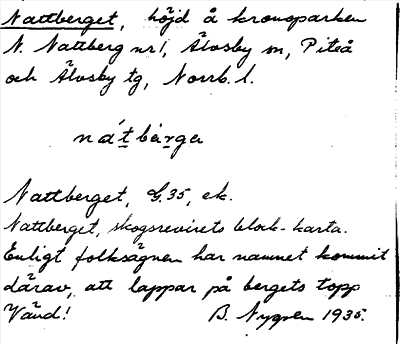 Nattberget, höjd å kronoparken
N. Nattberg nr 1, Älvsby sn, Piteå
och Älvsby tg, Norrb. l.
nátbärga
Nattberget, G.35, ek.
Nattberget, skogsrevirets block-karta.
Enligt folksägnen har namnet kommit
därav, att lappar på bergets topp
Vänd! B. Nygren 1935.